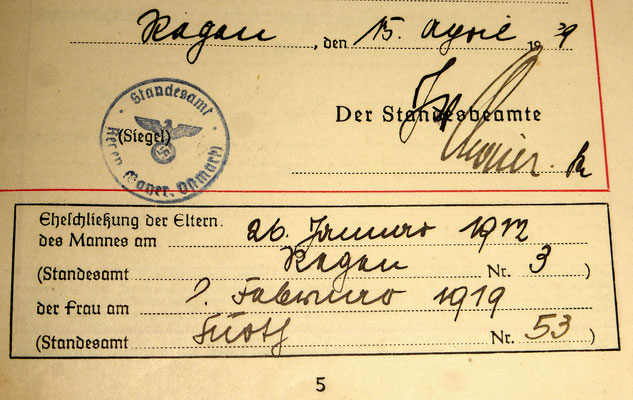 Regen, den 15. April 1939
Standesamt
(Siegel)
Regen (Bayer. Ostmark)
Der Standesbeamte
Eheschließung der Eltern
des Mannes am 26. Januar 1912
(Standesamt Regen Nr. 3)
der Frau am Februar 1919
(Standesamt Fürth Nr. 53)
5